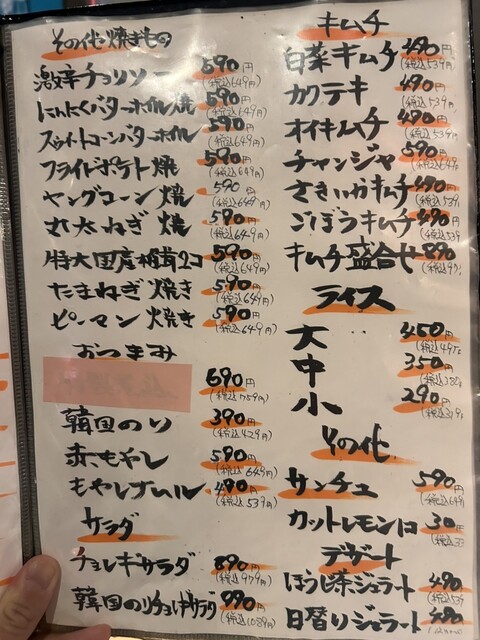 その他・焼きもの
激辛チョリソー 590円 (税込649円)
にんにくバターホイル焼 590円 (税込649円)
スイートコーンバターホイル 590円 (税込649円)
フライドポテト焼 590円 (税込649円)
ヤングコーン焼 590円 (税込649円)
丸太ねぎ焼 590円 (税込649円)
特大国産椎茸2コ 590円 (税込649円)
たまねぎ焼き 590円 (税込649円)
ピーマン焼き 590円 (税込649円)
おつまみ
690円 (税込759円)
韓国のり 390円 (税込429円)
赤もやし 590円 (税込649円)
もやしナムル 490円 (税込539円)
サラダ
チョレギサラダ 890円 (税込979円)
韓国のりチョレギサラダ 990円 (税込1089円)
キムチ
白菜キムチ 490円 (税込539円)
カクテキ 490円 (税込539円)
オイキムチ 490円 (税込539円)
チャンジャ 590円 (税込649円)
さきいかキムチ 490円 (税込539
ごぼうキムチ 490円 (税込539
キムチ盛合せ 890円 (税込97
ライス
大 450円 (税込495
中 350円
小 290円 (税込319
その他
サンチュ 590円 (税込649
カットレモン1コ 30円 (税込33
デザート
ほうじ茶ジェラート 490円 (税込539
日替りジェラート